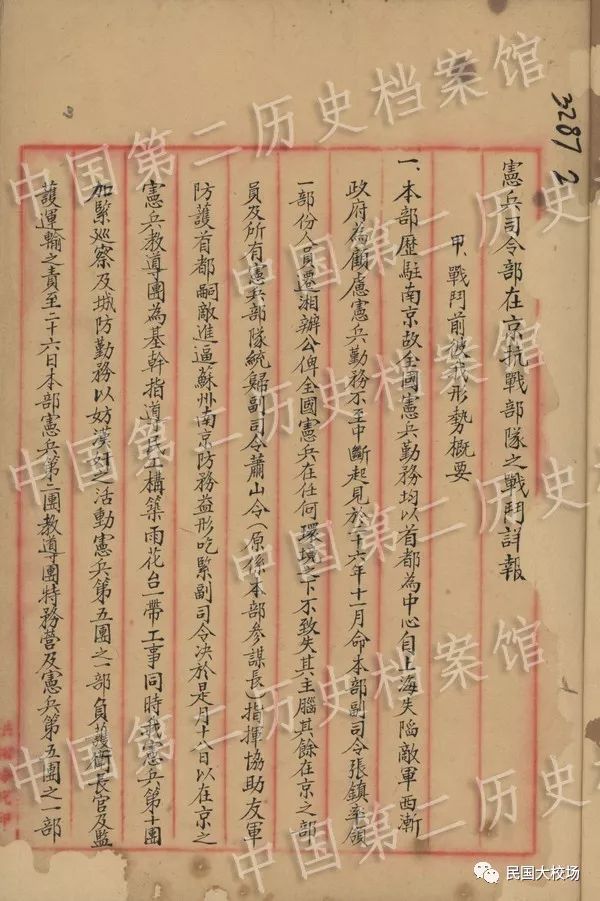 3287 2
憲兵司令部在京抗戰部隊之戰鬥詳報
甲、戰鬥前彼我形勢概要
一、本部歷駐南京故全國憲兵勤務均以首都為中心自上海失陷敵軍西漸
政府為顧慮憲兵勤務不至中斷起見於二十六年十一月命本部副司令張鎮率領
一部份人員遷湘辦公俾全國憲兵在任何環境之下不致失其主腦其餘在京之部
員及所有憲兵部隊統歸副司令蕭山令(原係本部參謀長)指揮協助友軍
防護首都嗣敵進逼蘇州南京防務益形吃緊副司令決於是月十八日以在京之
憲兵教導團為基幹指導民工構築雨花台一帶工事同時我憲兵第十團
加緊巡察及城防勤務以妨漢奸之活動憲兵第五團之一部負護衛長官及監
護運輸之責至二十六日本部憲兵第二團教導團特務營及憲兵第五團之一部
中国第二历史档案馆
中国第二历史档案馆
中国第二历史档案馆
中国第二历史档案馆
中国第二历史档案馆
中国第二历史档案馆
民国大校场